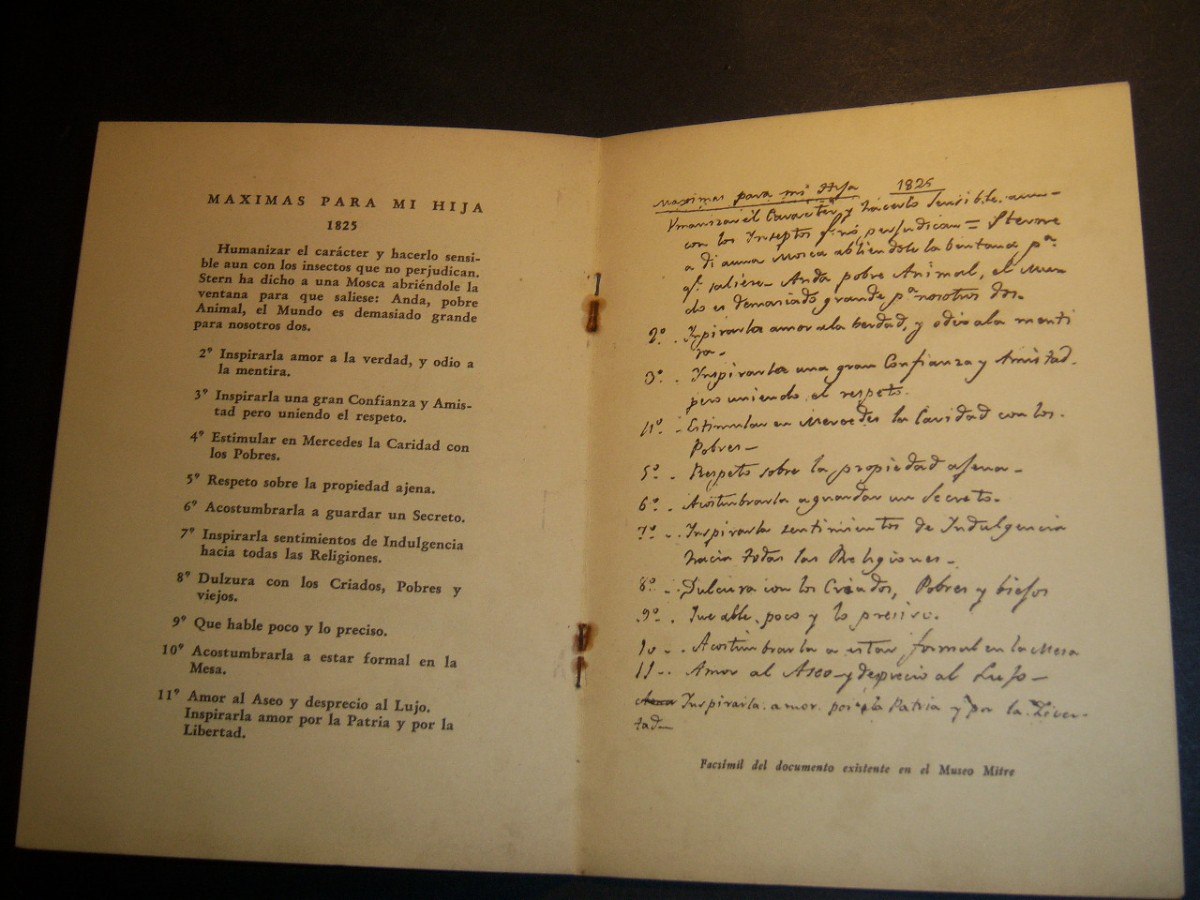 MAXIMAS PARA MI HIJA
1825
Humanizar el carácter y hacerlo sensi-
ble aun con los insectos que no perjudican.
Stern ha dicho a una Mosca abriéndole la
ventana para que saliese: Anda, pobre
Animal, el Mundo es demasiado grande
para nosotros dos.
2º Inspirarla amor a la verdad, y odio a
la mentira.
3º Inspirarla una gran Confianza y Amis-
tad pero uniendo el respeto.
4º Estimular en Mercedes la Caridad con
los Pobres.
5º Respeto sobre la propiedad ajena.
6º Acostumbrarla a guardar un Secreto.
7º Inspirarla sentimientos de Indulgencia
hacia todas las Religiones.
8º Dulzura con los Criados, Pobres y
viejos.
9º Que hable poco y lo preciso.
10º Acostumbrarla a estar formal en la
Mesa.
11º Amor al Aseo y desprecio al Lujo.
Inspirarla amor por la Patria y por la
Libertad.
Maximas para mi Hija 1825
Vmanizar el Caracter y hacerlo Sensible aun
con los Inseptos q. no perjudican = Sterne
a di a una Mosca abriendole la bentana pª
qº saliese Anda pobre Animal, el Mun-
do es demasiado grande pª nosotros dos.
2º Inspirarla amor ala berdad, y odio ala menti
ra-
3º Inspirarla una gran Confianza y Amistad
pero uniendo el respeto.
4º Estimular en Mercedes la Caridad con los
Pobres-
5º Respeto sobre la propiedad agena-
6º Acostumbrarla aguardar un Secreto.
7º Inspirarla sentimientos de Indulgencia
hacia todas las Religiones-
8º Dulzura con los Criados, Pobres y biejos
9º Que able poco y lo preciso.
10 Acostumbrarla a estar formal en la Mesa
11 Amor al Aseo y desprecio al Lujo-
Inspirarla amor por la Patria y por la Liver-
tad-
Facsímil del documento existente en el Museo Mitre